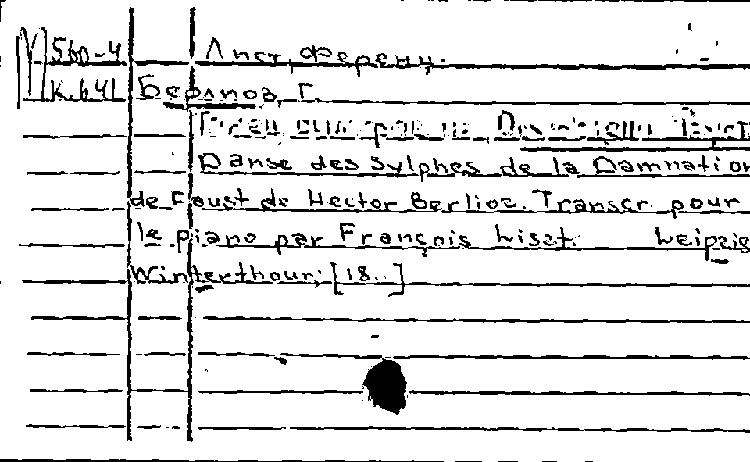 М 560-4 Лист, Ференц.
К.641 Берлиоз, Г.
Танец сильфов из
Danse des Sylphes de la Damnation
de Faust de Hector Berlioz. Transcr. pour
le piano par François Liszt. Leipzig
Winterthour, [18..]